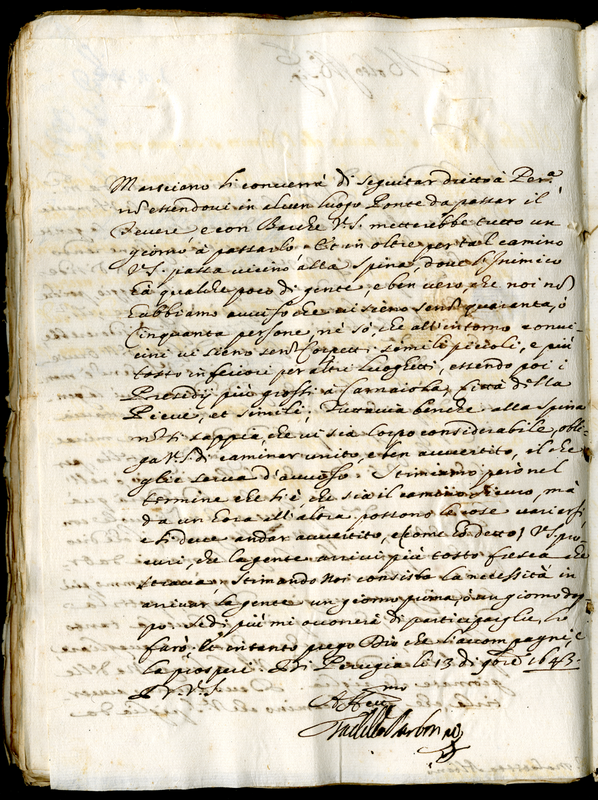 Marsciano li converrà di seguitar dritto à Per.a
nō essendovi in alcun luogo Ponte da passar il
Tevere e con Barche V.S. metterebbe tutto un
giorno à passarlo. Et in oltre per tal camino
V.S. passa vicino alla Spina, dove l'Inimico
hà qualche poco di gente, e ben vero che noi nō
habbiamo avviso che vi sieno senō quaranta, ò
Cinquanta persone, nè sò, che all'intorno e convi-
cini vi sieno senō Corpetti simili piccioli, e più
tosto inferiori per altri luoghetti, essendo poi i
Presidij più grossi à Carnaiola, Città della
Pieve, et simili; Tuttavia benche alla Spina
nō si sappia, che vi sia Corpo considerabile, obli-
ga V.S. di caminar unito, e ben avvertito, il che
gli serva d'avviso. Stimiamo però nel
termine che si è che sia il camino sicuro, mà
da un'hora all'altra possono le cose variarsi
e si deve andar avvertito, e come hò detto, V.S. pro-
curi, che la gente arrivi più tosto fresca che
stracca, stimando non consista la necessità in
arrivar la gente un giorno prima, ò un giorno do-
po. Se di più mi occorrerà di participargli, lo
farò. Et intanto prego Dio che l'accompagni, e
la prosperi. Di Perugia li 13 di 9bre 1643.
D. V. S.
Aff.mo